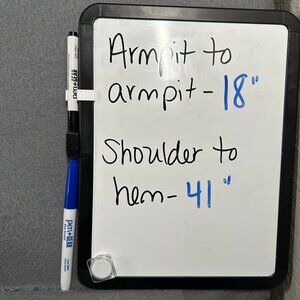 Armpit to
armpit - 18"
Shoulder to
hem - 41"